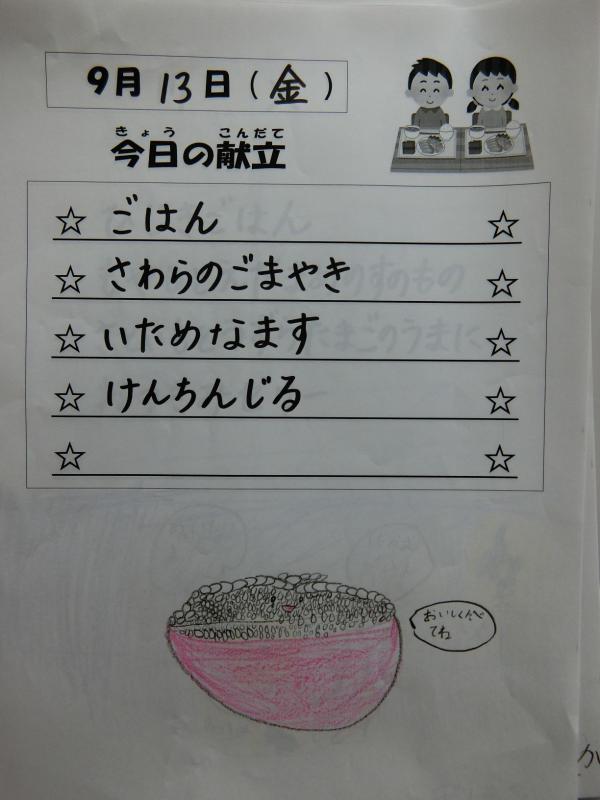 9月13日(金)
きょう こんだて
今日の献立
☆ ごはん ☆
☆ さわらのごまやき ☆
☆ いためなます ☆
☆ けんちんじる ☆
☆ ☆
おいしくたべ
てね
か